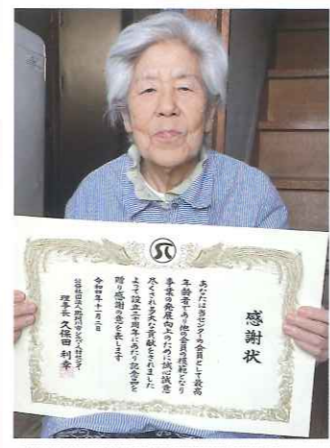 感謝状
あなたは当センターの会員として最高
年齢者であり他の会員の模範となり
事業の発展向上のために誠心誠意
尽くされ多大な貢献をされました
よって設立三十周年にあたり記念品を
贈り感謝の意を表します
令和四年十一月二日
公益社団法人
シルバー人材センター
理事長 久保田 利幸